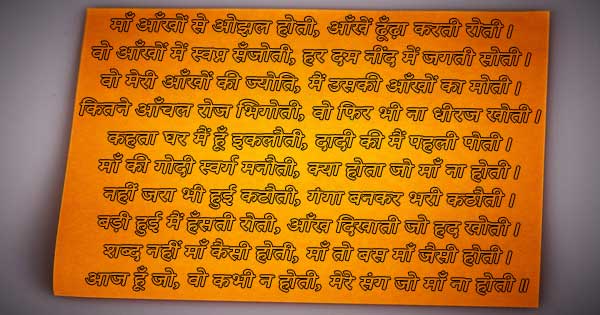 माँ आँखों से ओझल होती, आँखें ढूँढ़ा करती रोती।
वो आँखों में स्वप्न सँजोती, हर दम नींद में जगती सोती।
वो मेरी आँखों की ज्योति, मैं उसकी आँखों का मोती।
कितने आँचल रोज भिगोती, वो फिर भी ना धीरज खोती।
कहता घर मैं हूँ इकलौती, दादी की मैं पहली पोती।
माँ की गोदी स्वर्ग मनौती, क्या होता जो माँ ना होती।
नहीं जरा भी हुई कठौती, गंगा बनकर भरी कठौती।
बड़ी हुई मैं हँसती रोती, आँख दिखाती जो हद खोती।
शब्द नहीं माँ कैसी होती, माँ तो बस माँ जैसी होती।
आज हूँ जो, वो कभी न होती, मेरे संग जो माँ ना होती॥